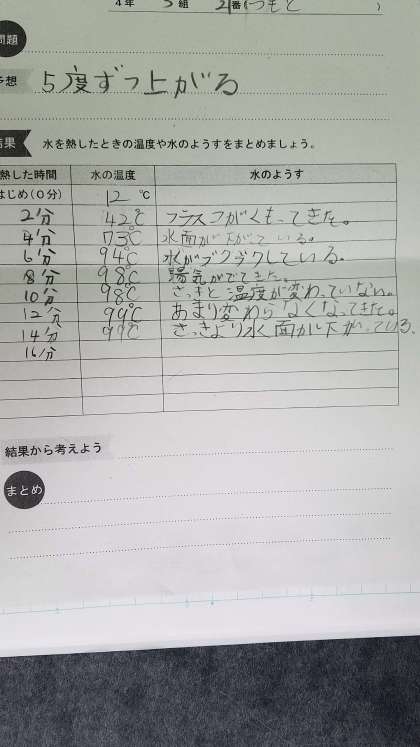 4年 3組 21番(つもと )
問題
予想 5度ずつ上がる
結果 水を熱したときの温度や水のようすをまとめましょう。
熱した時間 水の温度 水のようす
はじめ(0分) 12 ℃
2分 42℃ フラスコがくもってきた。
4分 73℃ 水面が下がっている。
6分 94℃ 水がブクブクしている。
8分 98℃ 湯気がでてきた。
10分 98℃ さっきと温度が変わっていない。
12分 99℃ あまり変わらなくなってきた。
14分 99℃ さっきより水面が下がっている、
16分
結果から考えよう
まとめ